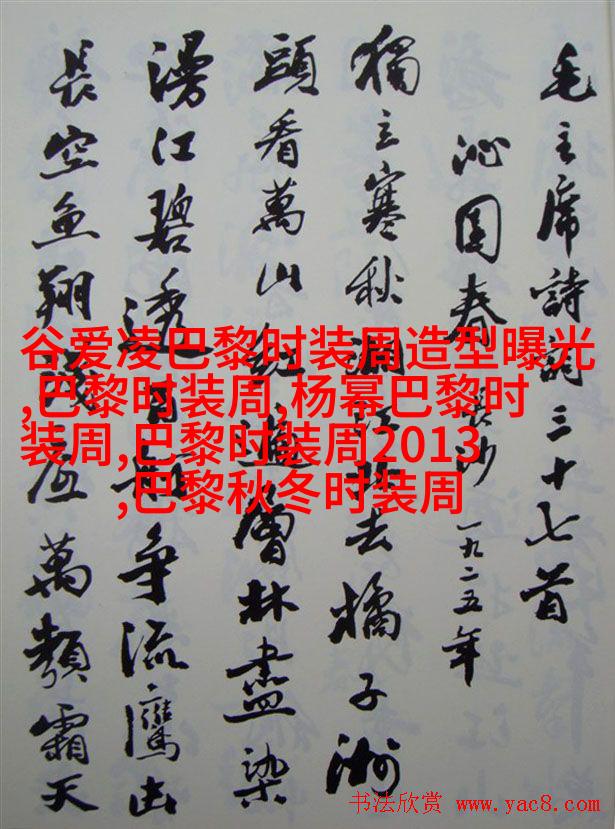 毛主席詩詞三十七首
沁园春 長沙 一九二五年
獨立寒秋湘江北去橘子洲
頭看萬山紅遍層林盡染
漫江碧透百舸争流鷹击
長空魚翔淺底萬類霜天
谷爱凌巴黎时装周造型曝光
,巴黎时装周,杨幂巴黎时
装周,巴黎时装周2013
,巴黎秋冬时装周
书法欣赏 www.yac8.com